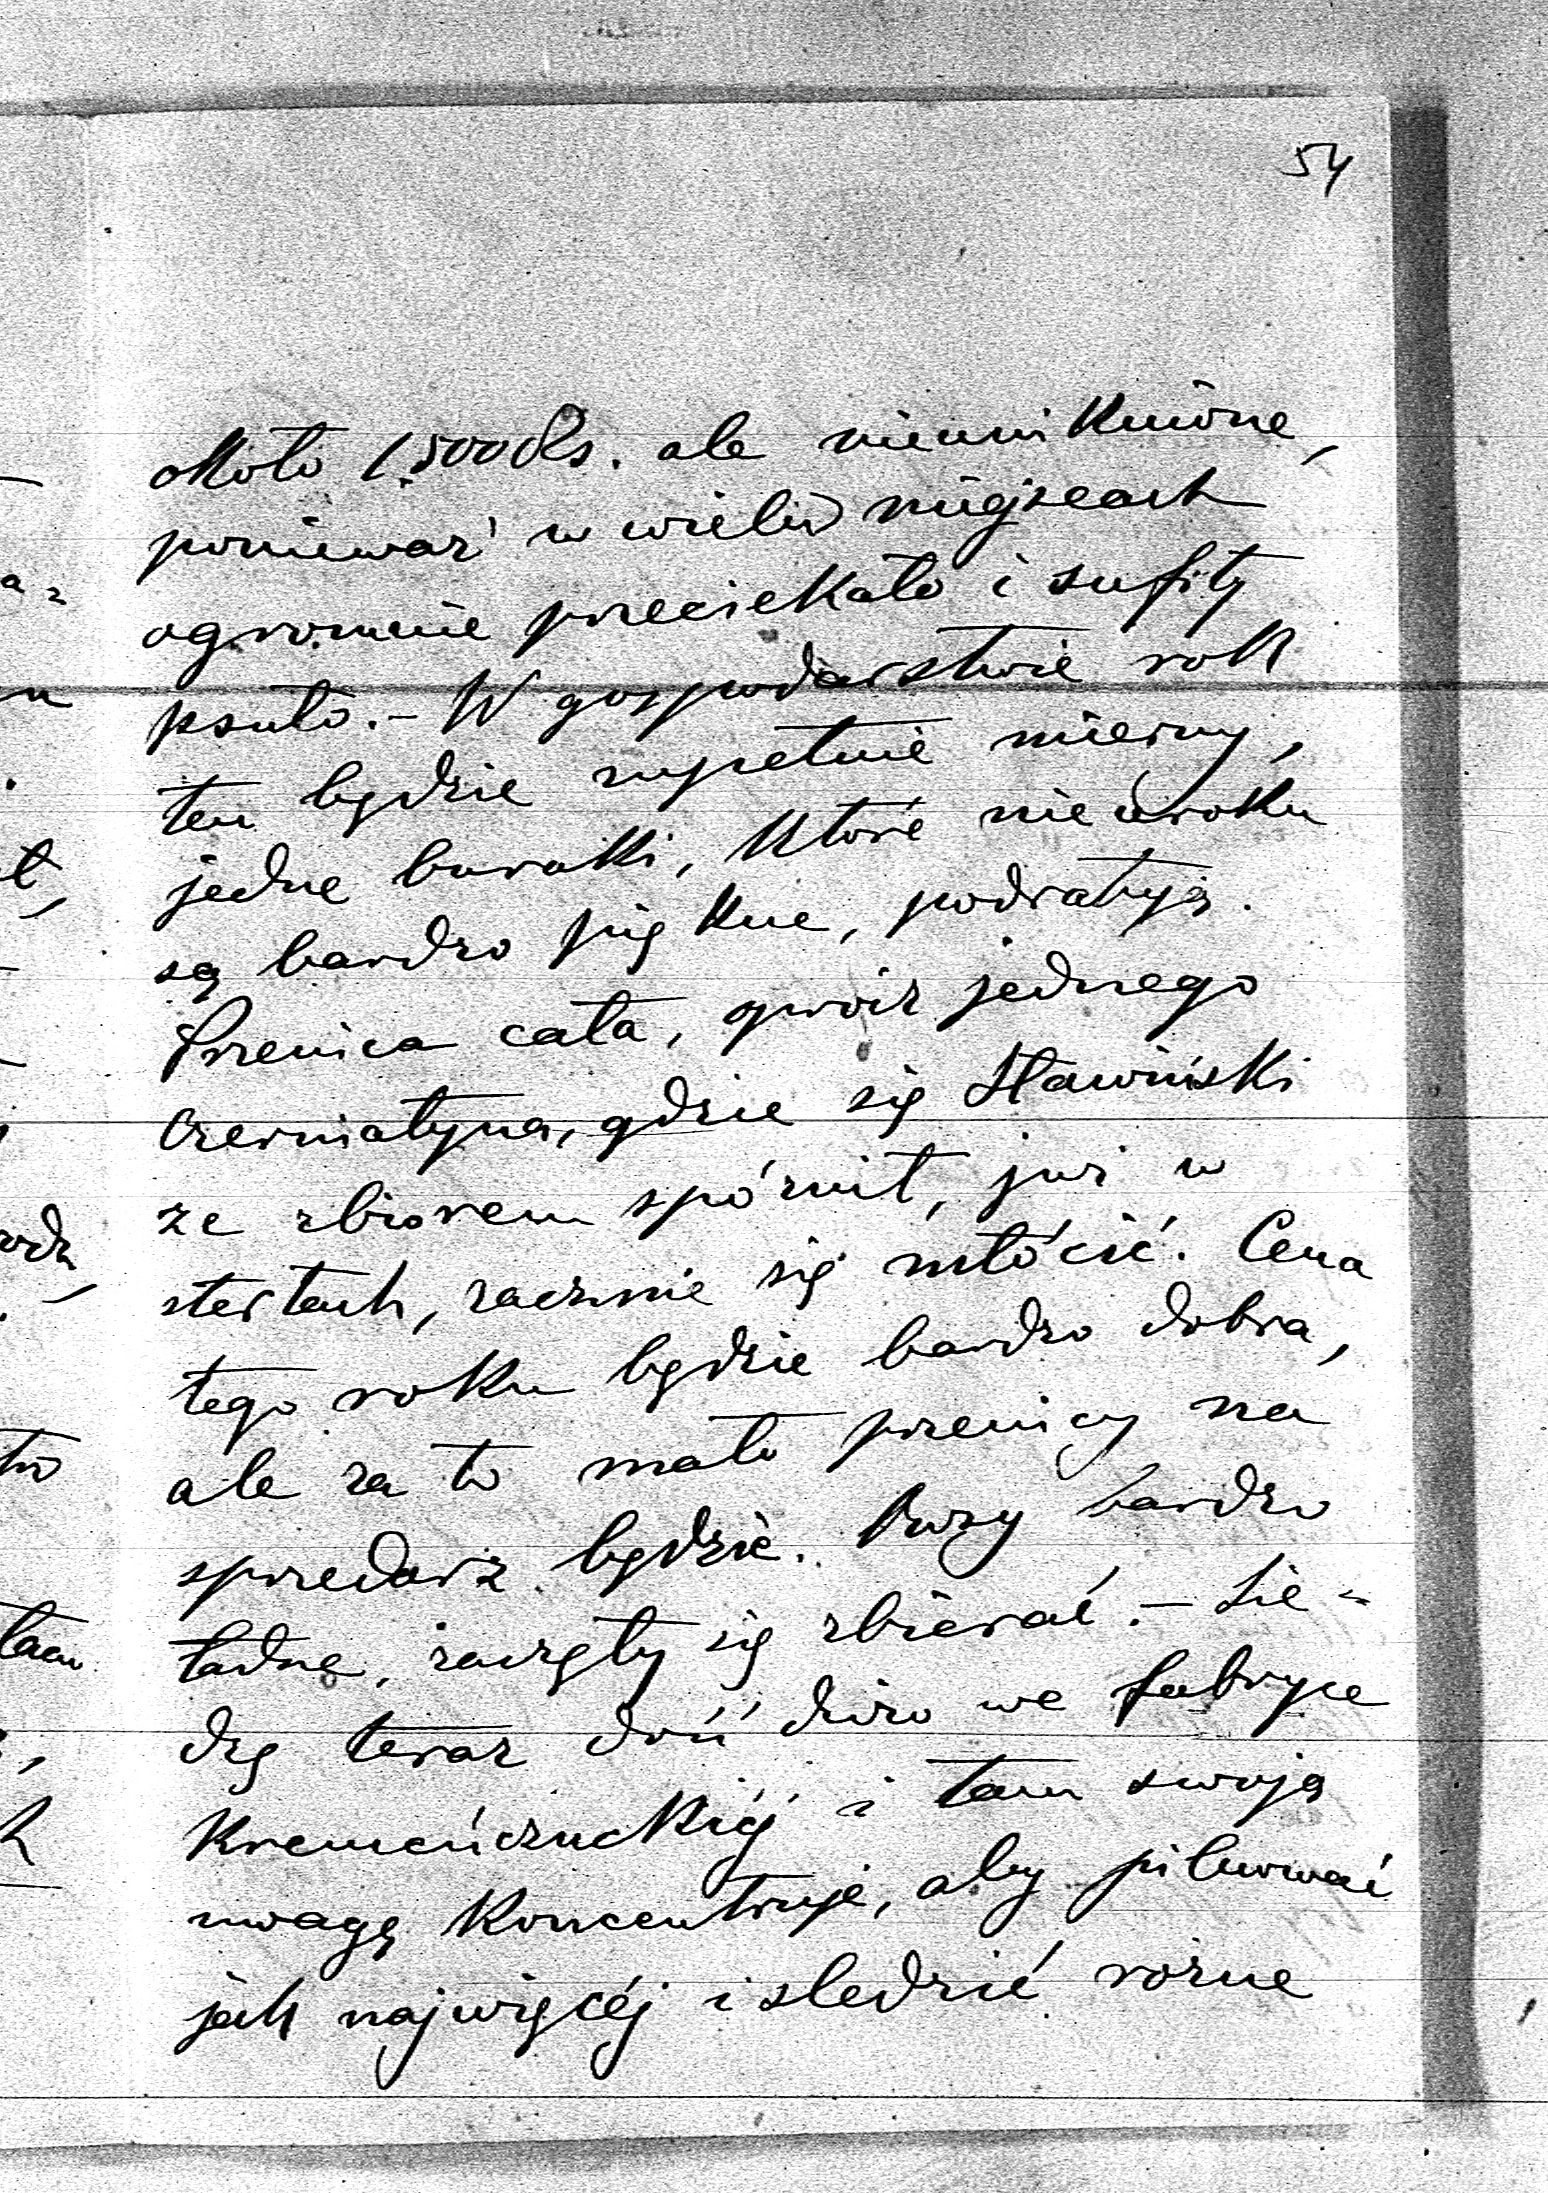 54
około 1.500 Rs. ale nieuniknione,
ponieważ w wielu miejscach
ogromnie przeciekało i sufity
psuło. – W gospodarstwie rok
ten będzie zupełnie mierny,
jedne buraki, które nie uroku
są bardzo piękne, podratują.
Pszenica cała, oprócz jednego
Czerniatyna, gdzie się Sławiński
ze zbiorem spóźnił, już w
stertach, zacznie się młócić. Cena
tego roku będzie bardzo dobra,
ale za to mało pszenicy na
sprzedarz będzie. Prosy bardzo
ładne, zaczęły się zbierać. – Sie-
dzę teraz dość dużo we fabryce
Kremeńczuckiéj i tam swoją
uwagę koncentruję, aby pilnować
jak najwięcéj i sledzić rożne